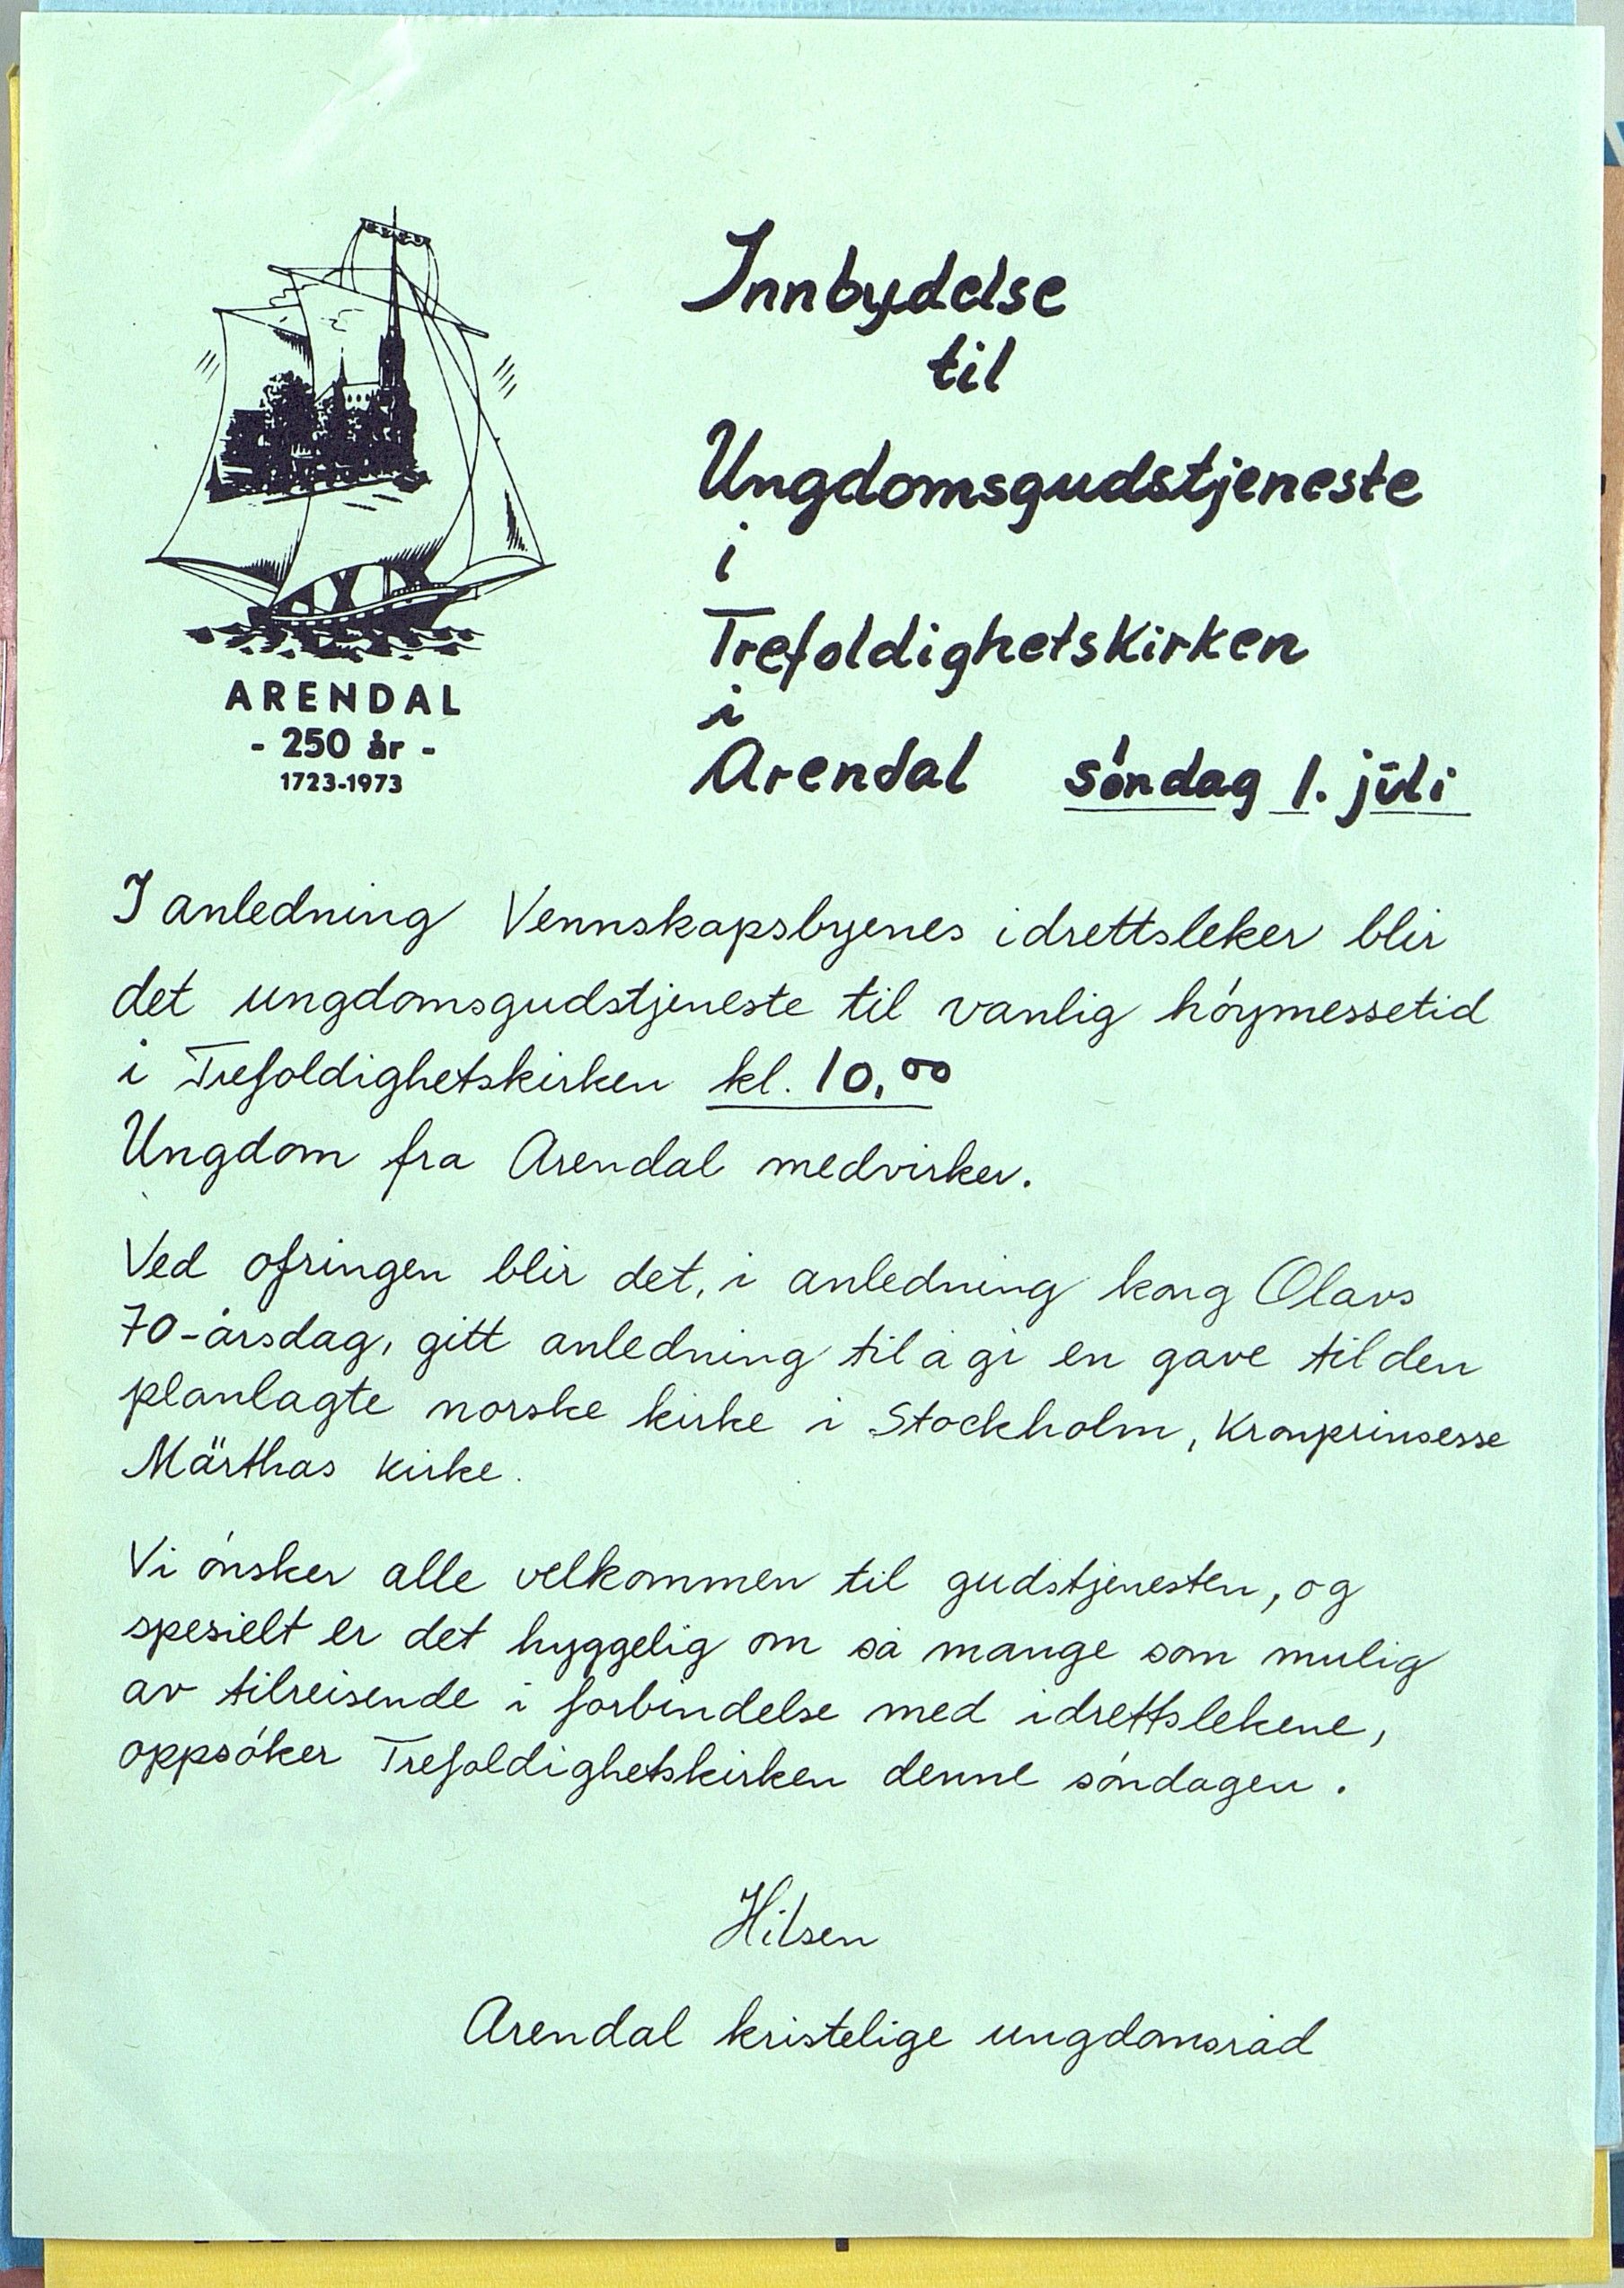 Innbydelse
til
Ungdomsgudstjeneste
i
Trefoldighetskirken
i
Arendal søndag 1. juli
ARENDAL
- 250 år -
1723-1973
I anledning Vennskapsbyenes idrettsleker blir
det ungdomsgudstjeneste til vanlig høymessetid
i Trefoldighetskirken kl. 10,00
Ungdom fra Arendal medvirker.
Ved ofringen blir det, i anledning kong Olavs
70-årsdag, gitt anledning til å gi en gave til den
planlagte norske kirke i Stockholm, Kronprinsesse
Märthas kirke.
Vi ønsker alle velkommen til gudstjenesten, og
spesielt er det hyggelig om så mange som mulig
av tilreisende i forbindelse med idrettslekene,
oppsøker Trefoldighetskirken denne søndagen.
Hilsen
Arendal kristelige ungdomsråd